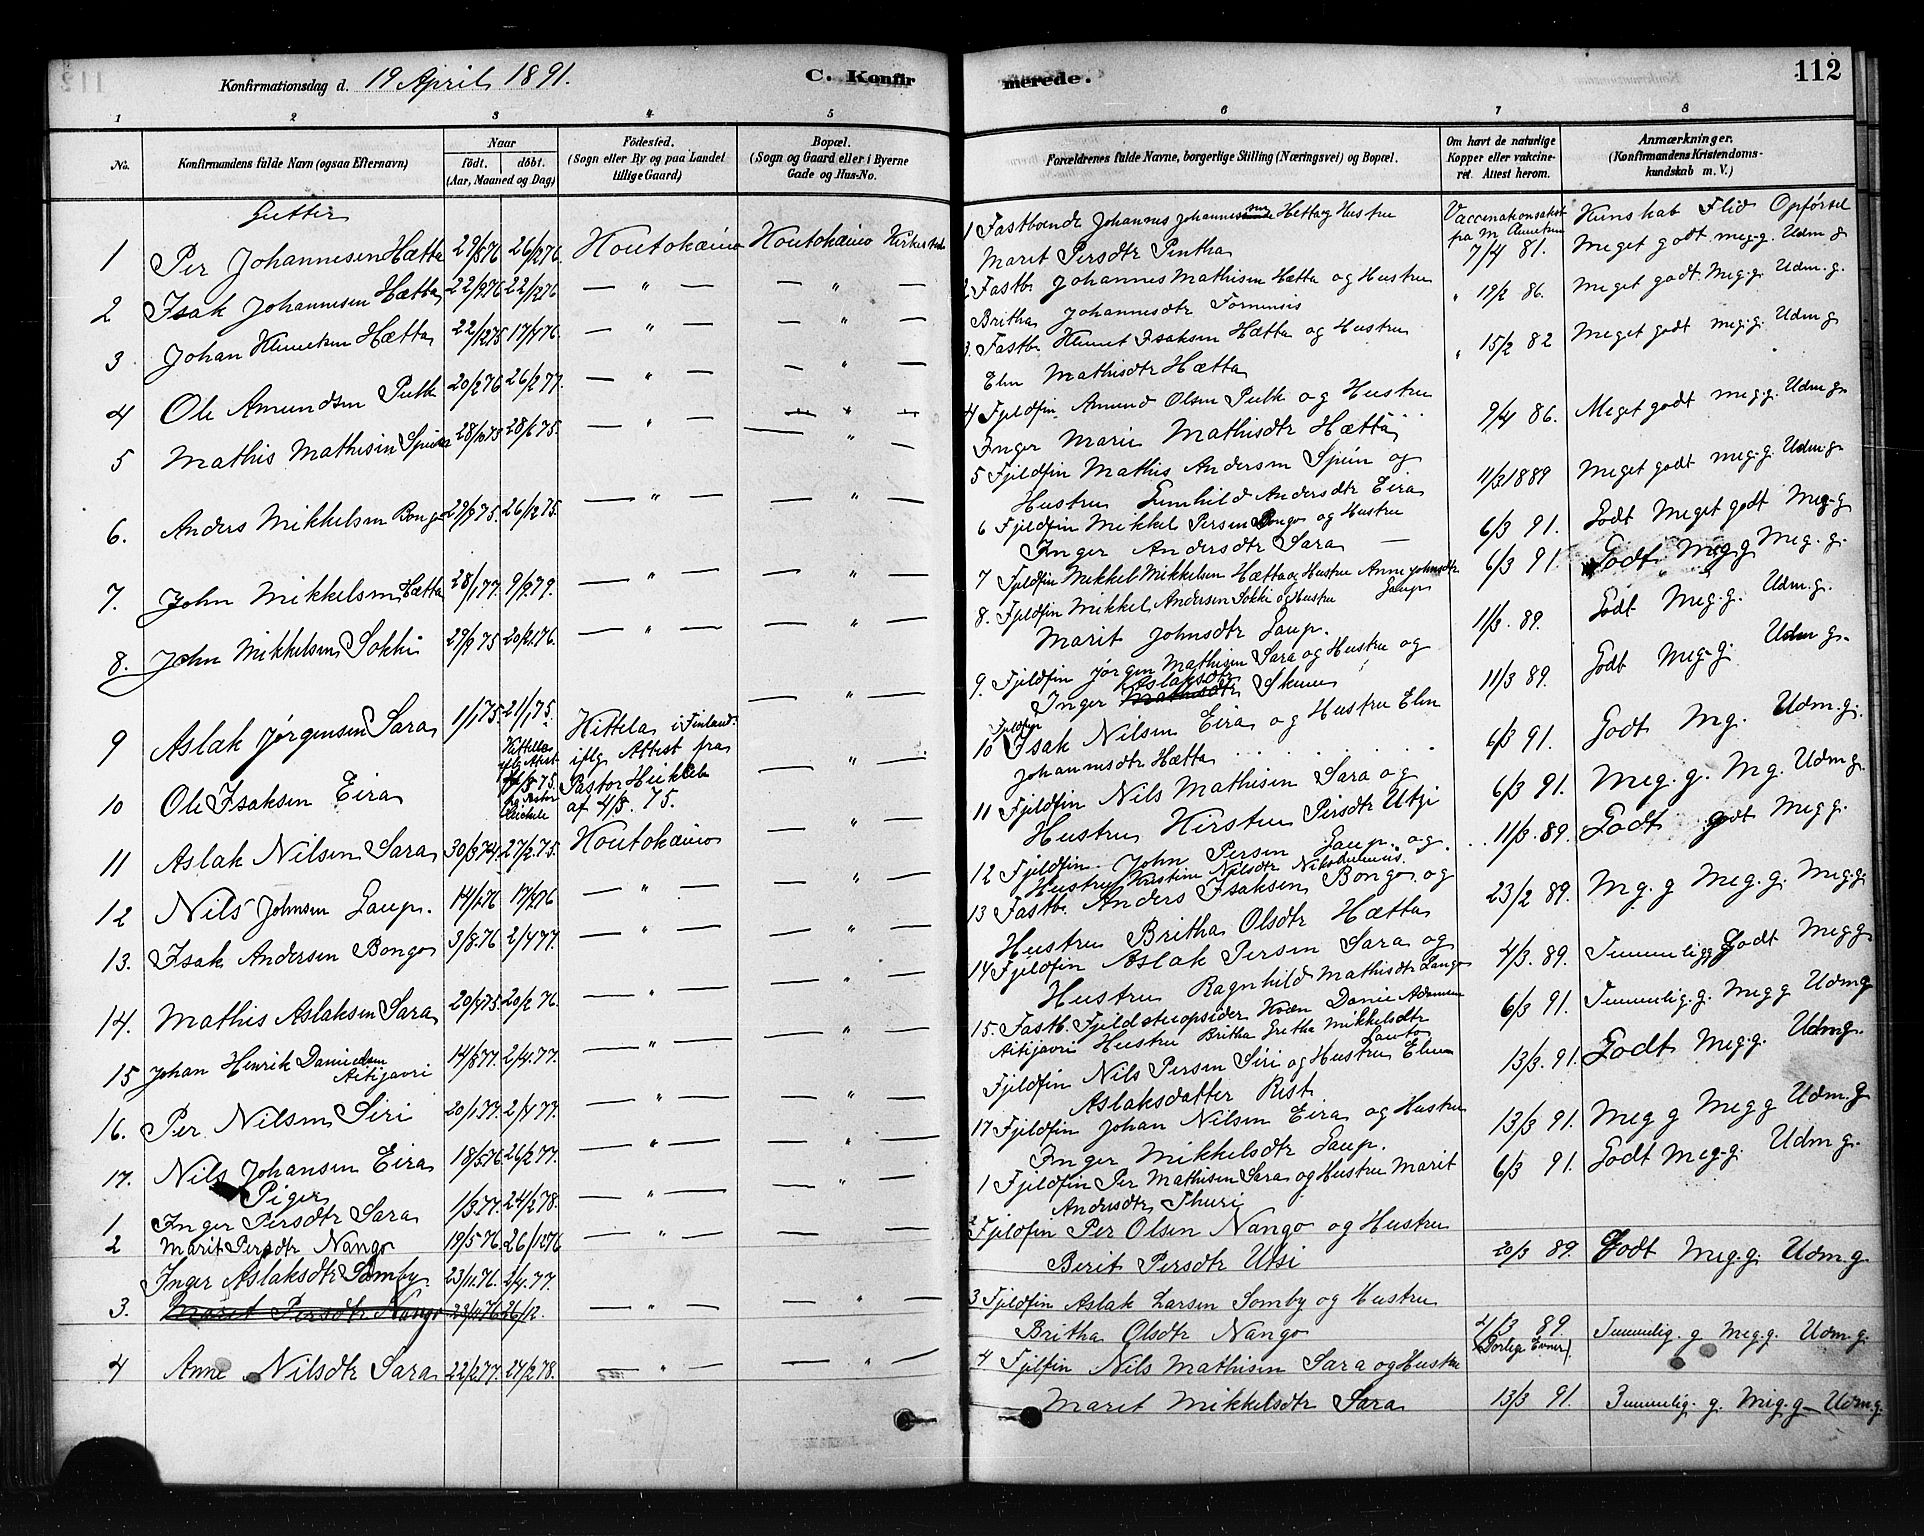 Konfirmationsdag d. 19 April 1891.
C. Konfirmerede.
112
1 2 3 4 5 6 7 8
No.
Konfirmandens fulde Navn (ogsaa Efternavn)
Naar født. døbt. (Aar, Maaned og Dag)
Fødested. (Sogn eller By og paa Landet tillige Gaard)
Bopæl. (Sogn og Gaard eller i Byerne Gade og Hus-No.
Forældrenes fulde Navne, borgerlige Stilling (Næringsvei) og Bopæl.
Om havt de naturlige Kopper eller vakcineret. Attest herom.
Anmærkninger. (Konfirmandens Kristendomskundskab m. V.)
Gutter
1 Per Johannesen Hætta 26/12 76. Koutokæino Koutokæino
1 Fastboende Johannes Johannesen Hætta og Hustru
Marit Persdtr Pentha 7/4 81. Meget godt meg. g. Udm g
Kunskab Flid Opførsel
2 Isak Johannesen Hætta — " — — " —
2 Fastb. Johannes Mathisen Hætta og Hustru
Britha Johannesdtr " 19/2 86. Meget godt Meg. g. Udm. g.
3 Johan Klemetsen Hætta — " — — " —
3. Fastb. Klemet Isaksen Hætta og Hustru
Elen Mathisdtr Hætta " 15/2 82 Meget godt meg. g. Udm g
4 Ole Amundsen 26/2 77. — " — — " —
4 Fjeldfin Amund Olsen og Hustru
Inger Marie Mathisdtr Hætta 9/4 86. Meget godt meg. g. Udm g.
5 Mathis Mathisen 28/6 75. — " — — " —
5 Fjeldfin Mathis Andersen og
Hustru Gunhild Andersdtr Eira 11/3 1889 Meget godt meg. g. Udm g.
6. Anders Mikkelsen Bongo 26/12 75. — " — — " —
6 Fjeldfin Mikkel Persen Bongo og Hustru
Inger Andersdtr Sara — 6/3 91. Godt Meget godt Meg. g
7. John Mikkelsen Hætta 28/1 77. 9/2 79. — " — — " —
7 Fjeldfin Mikkel Mikkelsen Hætta og Hustru Anne Johnsdtr Gaup 6/3 91. Godt Meg g Meg. g.
8. John Mikkelsen Sokki 20/2 76. — " — — " —
8. Fjeldfin Mikkel Andersen Sokki og Hustru
Marit Johnsdtr Gaup. 11/3. 89. Godt Meg. g. Udm. g.
9 Aslak Jørgensen Sara 1/1 75. 21/1 75. — " —
9. Fjeldfin Jørgen Mathisen Sara og Hustru og
Inger Aslaksdtr 11/3 89. Godt Meg. g. Udm g.
10 Ole Isaksen Eira Kittela i Finland iflg. Attest fra Pastor af 4/8. 75. — " —
10 Fjeldfin Isak Nilsen Eira og Hustru Elen
Johannesdtr Hætta 6/3 91. Godt M g. Udm. g.
11 Aslak Nilsen Sara 30/3 74. 27/2 75. Koutokæino — " —
11 Fjeldfin Nils Mathisen Sara og
Hustru Kirsten Persdtr Utsi 6/3 91. Meg. g. M g. Udm g.
12 Nils Johnsen Gaup. — " — — " —
12 Fjeldfin John Persen Gaup. og
Hustru Kirstine Nilsdtr Nikodemus. 11/3. 89. Godt godt Meg g.
13. Isak Andersen Bongo 3/8. 76 2/4 77. — " — — " —
13 Fastb. Anders Isaksen Bongo og
Hustru Britha Olsdtr Hætta 23/2 89. M g. g Meg. g. Meg. g.
14. Mathis Aslaksen Sara 20/2 76. — " — — " —
14 Fjeldfin Aslak Persen Sara og
Hustru Ragnhild Mathisdtr 4/3. 89. Temmelig g Godt Meg g
15 Johan Henrik Danielsen Aitijavri 2/4. 77. — " — — " —
15. Fastb. Fjeldstueopsider Kvæn Daniel
Aitijavri Hustru Britha Gretha Mikkelsdtr 6/3 91. Temmelig. g. Meg g Udm g
16. Per Nilsen Siri 20/1 77. 2/4 77. — " — — " —
Fjeldfin Nils Persen Siri og Hustru Elen
Aslaksdatter Rist 13/3. 91. Godt Meg. g. Udm g.
17. Nils Johansen Eira 18/5 76. 26/2 77. — " — — " —
17 Fjeldfin Johan Nilsen Eira og Hustru
Inger Mikkelsdtr Gaup. 13/3 91. Meg g Meg g Udm. g
Piger
1 Inger Persdtr Sara 1/3. 77. 24/2 78. — " — — " —
1 Fjeldfin Per Mathisen Sara og Hustru Marit
Andersdtr Thuri 6/3 91. Godt Meg. g. Udm g.
2 Marit Persdtr Nango 19/5 76. 26/12 76 — " — — " —
2 Fjeldfin Per Olsen Nango og Hustru
Berit Persdtr Utsi 20/3 89. Godt Meg. g. Udm. g
3. Inger Aslaksdtr Somby 23/11. 76. 2/4. 77.
Maret Persdtr Nango 26/12. — " — — " —
3 Fjeldfin Aslak Larsen Somby og Hustru
Britha Olsdtr Nango 4/3 89. (Daarlige Evner). Temmelig. g Meg. g. Udm. g.
4 Anne Nilsdtr Sara 22/2 77. 24/2 78. — " — — " —
4 Fjelfin Nils Mathisen Sara og Hustru
Maret Mikkelsdtr Sara 13/3 91. Temmelig. g. Meg. g — Udm. g.